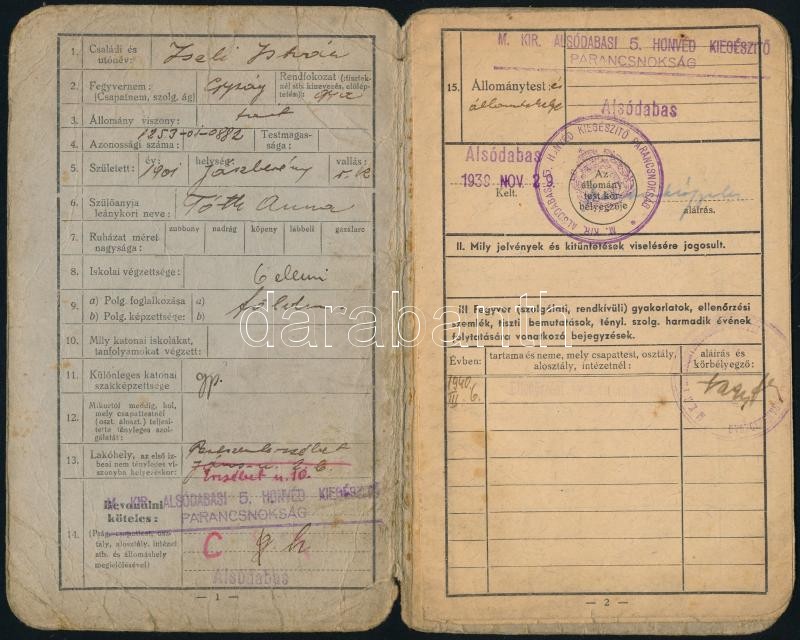 1. Családi és utónév: István
2. Fegyvernem: (Csapatnem, szolg. ág) Rendfokozat (:tisztek-
nél stb. kinevezés, előlép-
tetés:)
3. Állomány viszony:
4. Azonossági száma: 1253-01-0882 Testmagas-
sága:
5. Született: év: 1901 helység: Jászberény vallás: r. k.
6. Szülőanyja
leánykori neve: Tóth Anna
7. Ruházat méret
nagysága: zubbony nadrág köpeny lábbeli gázálarc
8. Iskolai végzettsége: 6 elemi
9. a) Polg. foglalkozása a)
b) Polg. képzettsége: b)
10. Mily katonai iskolákat,
tanfolyamokat végzett:
11. Különleges katonai
szakképzettsége gp.
12. Mikortól meddig, hol,
mely csapattestnél
(oszt. aloszt.) teljesí-
tette tényleges szol-
gálatát:
13. Lakóhely, az első íz-
beni nem tényleges vi-
szonyba helyezéskor: Pestszenterzsébet
Erzsébet u. 10.
M. KIR. ALSÓDABASI 5. HONVÉD KIEGÉSZITŐ
PARANCSNOKSÁG
Bevonulni
köteles:
14. (Pság, csapattest, osz-
tály, alosztály, intézet
stb. és állomáshely
megjelölésével) C
Alsódabas
— 1 —
M. KIR. ALSÓDABASI 5. HONVÉD KIEGÉSZITŐ
PARANCSNOKSÁG
15. Állománytest és
állomáshelye
Alsódabas
Alsódabas
1939 NOV 29.
Kelt.
M. KIR. ALSÓDABASI 5. HONVÉD KIEGÉSZITŐ PARANCSNOKSÁG
Az
állomány
test kör
bélyegzője
aláírás.
II. Mily jelvények és kitüntetések viselésére jogosult.
III Fegyver (szolgálati, rendkívüli) gyakorlatok, ellenőrzési
szemlék, tiszti bemutatások, tényl. szolg. harmadik évének
folytatására vonatkozó bejegyzések.
Évben: tartama és neme, mely csapattest, osztály,
alosztály, intézetnél: aláírás és
körbélyegző:
1940
III. 6.
— 2 —
darabanth